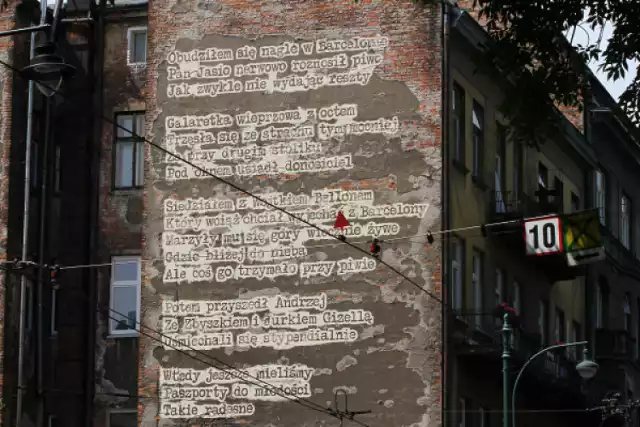 Obudziłem się nagle w Barcelonie
Pan Jasio nerwowo roznosił piwo
Jak zwykle nie wydając reszty
Galaretka wieprzowa z octem
Trzęsła się ze strachu tym mocniej
że przy drugim stoliku
Pod oknem usiadł donosiciel
Siedziałem z Wackiem Bellonem
Który wciąż chciał wyjechać z Barcelony
Marzyły mu się góry wiecznie żywe
Gdzie bliżej do nieba
Ale coś go trzymało przy piwie
Potem przyszedł Andrzej
Ze Zbyszkiem i Jurkiem Gizellą
Uśmiechali się stypendialnie
Wtedy jeszcze mieliśmy
Paszporty do młodości
Takie radosne
10